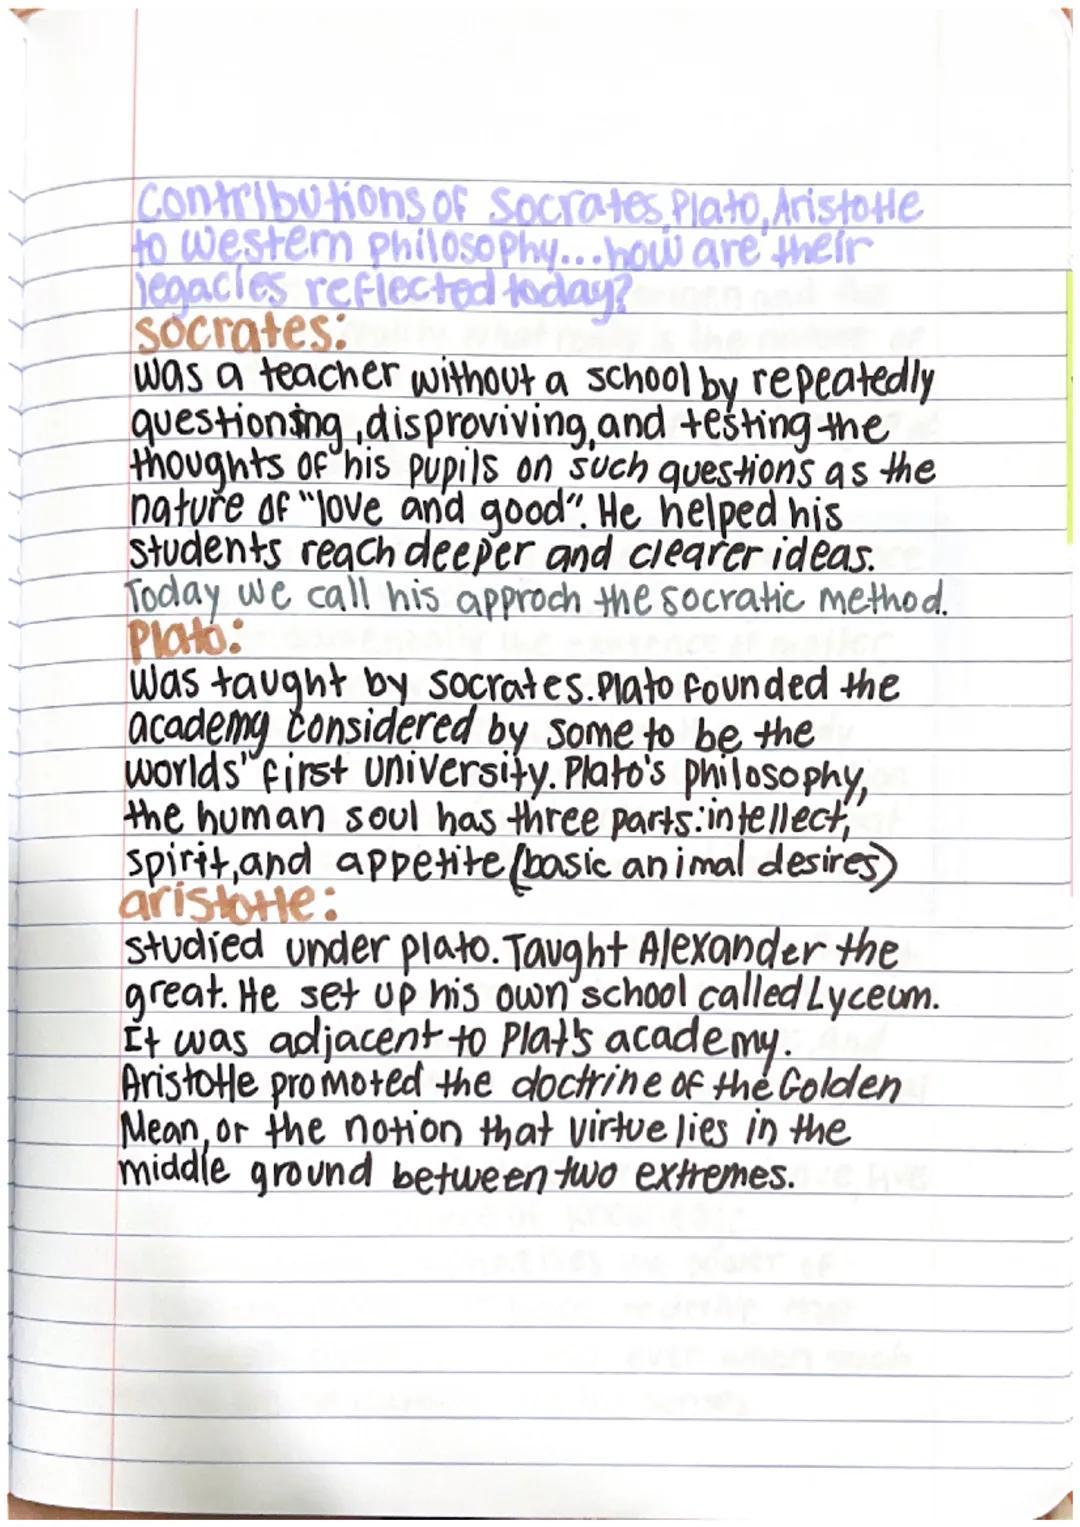 Contributions of Socrates, Plato, Aristotle
to Western philosophy...how are their
legacies reflected today?
socrates:
Was a teacher without a school by repeatedly
questioning, disproviving, and testing the
thoughts of his pupils on such questions as the
nature of "love and good". He helped his
students reach deeper and clearer ideas.
Today we call his approch the socratic method.
Plato:
Was taught by socrates. Plato founded the
academy considered by some to be the
worlds" first university. Plato's philosophy,
the human soul has three parts: intellect,
spirit, and appetite (basic animal desires)
aristotle:
studied under plato. Taught Alexander the
great. He set up his own school called Lyceum.
It was adjacent to Plat's academy.
Aristotle promoted the doctrine of the Golden
Mean, or the notion that virtue lies in the
middle ground between two extremes.